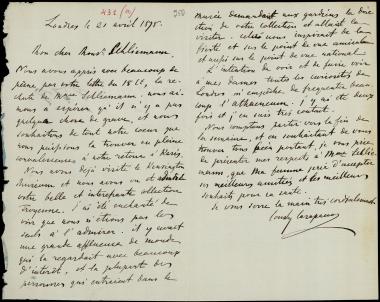 432 (a)
950
Londres le 21 avril 1878.
Mon cher Monsr. Schliemann.
Nous avons appris avec beaucoup de
peine, par votre lettre du 18 ct, la re-
chute de Mme Schliemann; nous ai-
mons à espérer qu'il n'y a pas
quelque chose de grave, et nous
souhaitons de tout notre coeur que
nous puissions la trouver en pleine
convalescence à notre retour à Paris.
Nous avons déjà visité le Kensington
Museum et nous avons vu et
votre belle et intéressante collection
troyenne. J'ai été enchanté de
voir que nous n'étions pas les
seuls à l'admirer. Il y avait
une grande affluence de monde
qui la regardait avec beaucoup
d'intérêt, et la plupart des
personnes qui entraient dans le
musée demandaient aux gardiens la direc-
tion de votre collection et allaient la
visiter. Cela nous inspirait de la
fierté et sur le point de vue amical
et aussi sur le point de vue national.
L'intention de voir et de faire voir
à ma femme toutes les curiosités de
Londres m'empêche de fréquenter beau-
coup l'athenaeum. J'y ai été deux
fois et j'en suis très content.
Nous comptons partir vers la fin de
la semaine, et en souhaitant de vous
trouver tous bien portants, je vous prie
de présenter mes respects à Mme Schlie-
mann, que ma femme prie d'accepter
ses meilleures amitiés et les meilleurs
souhaits pour sa santé.
Je vous serre la main très cordialement
Const. Carapanos